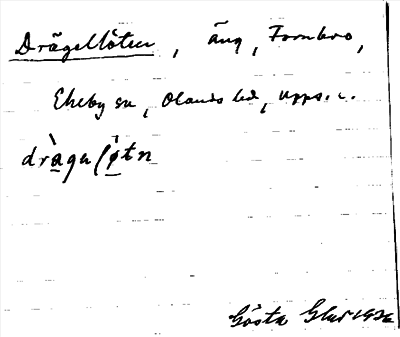 Drägellöten, äng, Fornbro,
Ekeby sn, Olands hd, Upps. l.
dràgəl ø̀tn
Gösta